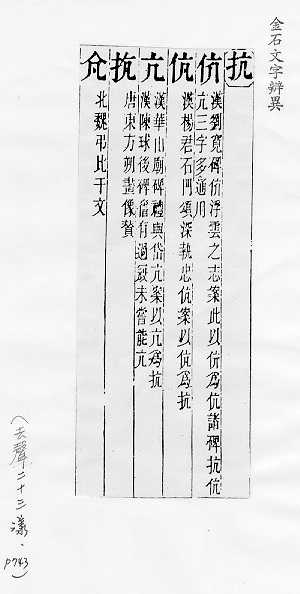 金石文字辨異
抗
伉 漢劉寬碑伉浮雲之志案此以伉為伉諸碑抗伉
亢三字多通用
伉 漢楊君石門頌深執忠伉案以伉為抗
亢 漢華山廟碑禮與岱亢案以亢為抗
漢陳球後碑有寇未嘗能亢
抗 唐東方朔畫像贊
北魏弔比干文
(去聲二十三漾.P743)